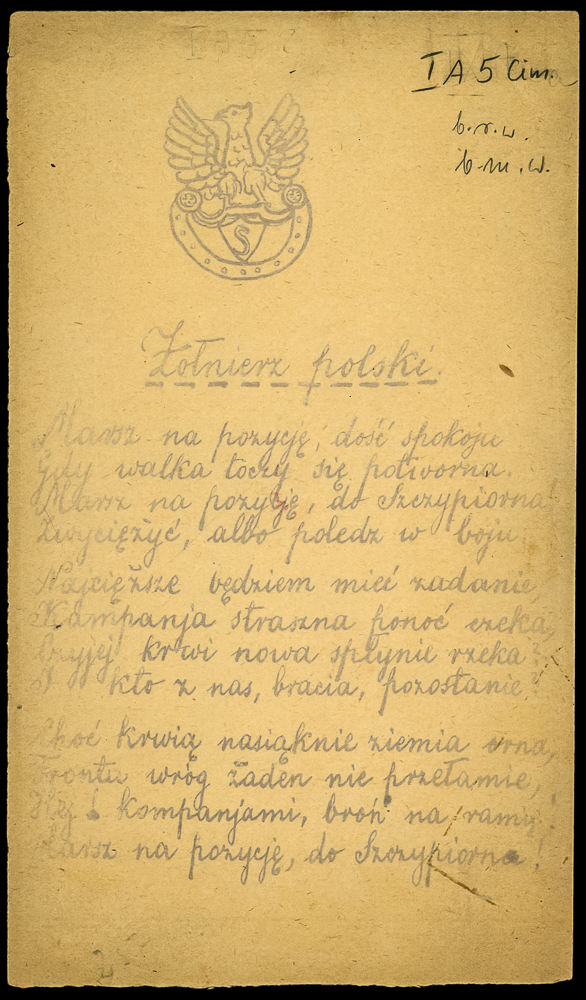 I A 5 Cim.
b.r.w.
b.m.w.
S
Żołnierz polski.
Marsz na pozycję, dość spokoju
Gdy walka toczy się potworna.
Marsz na pozycję, do Szczypiorna!
Zwyciężyć, albo poledz w boju.
Najcięższe będziem mieć zadanie,
Kampanja straszna ponoć czeka,
Czyjej krwi nowa spłynie rzeka?
I kto z nas, bracia, pozostanie?
Choć krwią nasiąknie ziemia orna,
Frontu wróg żaden nie przełamie,
Hej! kompanjami, broń na ramię
Marsz na pozycję, do Szczypiorna!